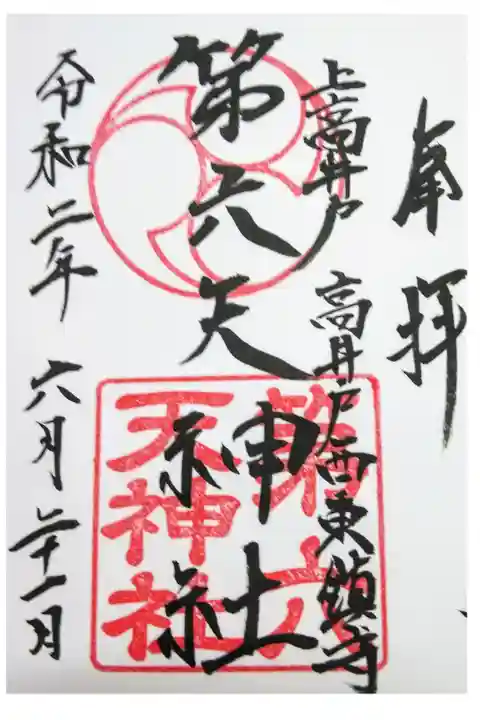 奉拝
上高井戸
高井戸西東鎮守
第六天神社
令和二年 六月二十一日
第六
天神社